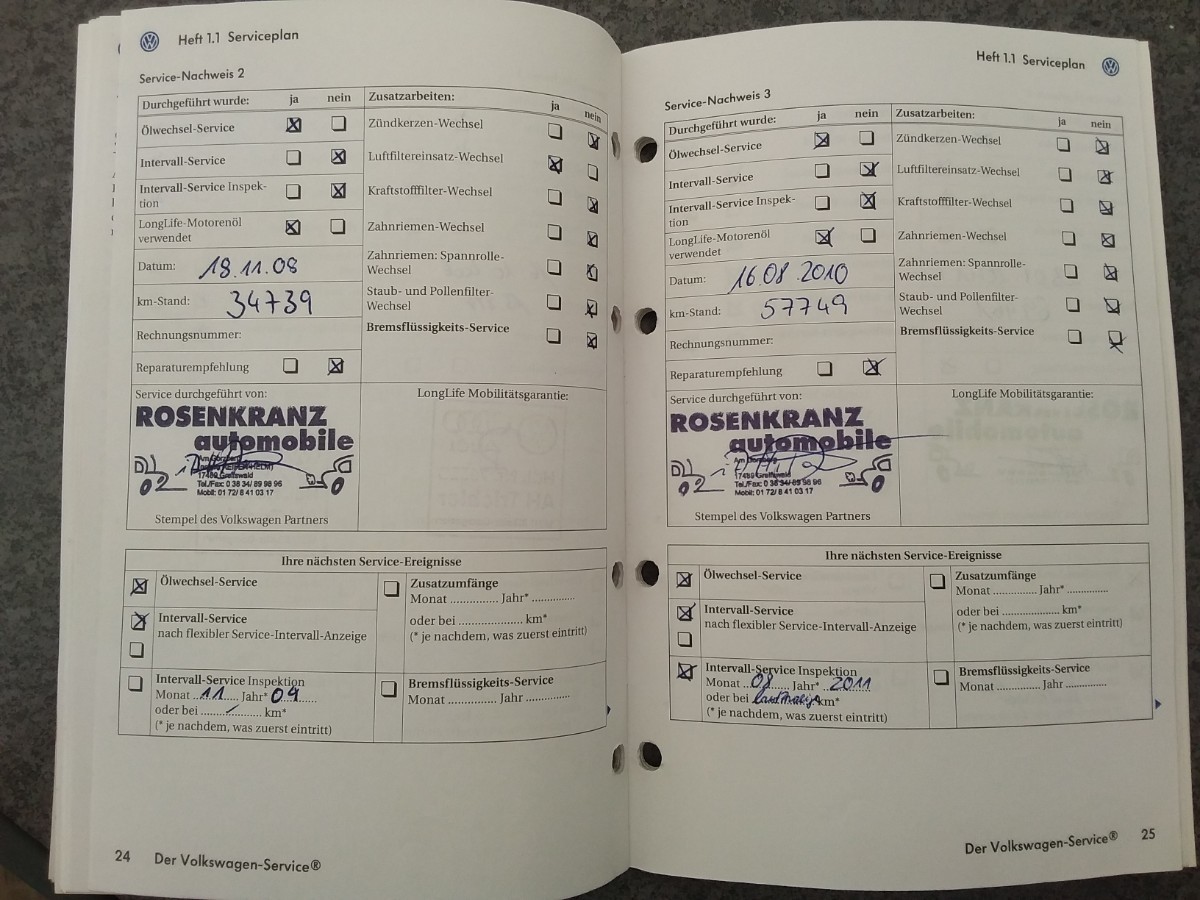 Heft 1.1 Serviceplan
Service-Nachweis 2
Durchgeführt wurde: ja nein
Ölwechsel-Service
Intervall-Service
Intervall-Service Inspek-
tion
LongLife-Motorenöl
verwendet
Datum: 18.11.08
km-Stand: 34739
Rechnungsnummer:
Reparaturempfehlung
Zusatzarbeiten: ja nein
Zündkerzen-Wechsel
Luftfiltereinsatz-Wechsel
Kraftstofffilter-Wechsel
Zahnriemen-Wechsel
Zahnriemen: Spannrolle-
Wechsel
Staub- und Pollenfilter-
Wechsel
Bremsflüssigkeits-Service
Service durchgeführt von:
ROSENKRANZ
automobile
17489 Greifswald
Tel./Fax: 0 38 34/ 89 98 96
Mobil: 01 72/ 8 41 03 17
Stempel des Volkswagen Partners
LongLife Mobilitätsgarantie:
Ihre nächsten Service-Ereignisse
Ölwechsel-Service
Intervall-Service
nach flexibler Service-Intervall-Anzeige
Intervall-Service Inspektion
Monat 11 Jahr* 09
oder bei / km*
(* je nachdem, was zuerst eintritt)
Zusatzumfänge
Monat ............... Jahr* ..............
oder bei ..................... km*
(* je nachdem, was zuerst eintritt)
Bremsflüssigkeits-Service
Monat ............... Jahr ..............
24 Der Volkswagen-Service®
Heft 1.1 Serviceplan
Service-Nachweis 3
Durchgeführt wurde: ja nein
Ölwechsel-Service
Intervall-Service
Intervall-Service Inspek-
tion
LongLife-Motorenöl
verwendet
Datum: 16.08.2010
km-Stand: 57749
Rechnungsnummer:
Reparaturempfehlung
Zusatzarbeiten: ja nein
Zündkerzen-Wechsel
Luftfiltereinsatz-Wechsel
Kraftstofffilter-Wechsel
Zahnriemen-Wechsel
Zahnriemen: Spannrolle-
Wechsel
Staub- und Pollenfilter-
Wechsel
Bremsflüssigkeits-Service
Service durchgeführt von:
ROSENKRANZ
automobile
17489 Greifswald
Tel./Fax: 0 38 34/ 89 98 96
Mobil: 01 72/ 8 41 03 17
Stempel des Volkswagen Partners
LongLife Mobilitätsgarantie:
Ihre nächsten Service-Ereignisse
Ölwechsel-Service
Intervall-Service
nach flexibler Service-Intervall-Anzeige
Intervall-Service Inspektion
Monat 08 Jahr* 2011
oder bei km*
(* je nachdem, was zuerst eintritt)
Zusatzumfänge
Monat ............... Jahr* ..............
oder bei ..................... km*
(* je nachdem, was zuerst eintritt)
Bremsflüssigkeits-Service
Monat ............... Jahr ..............
Der Volkswagen-Service® 25